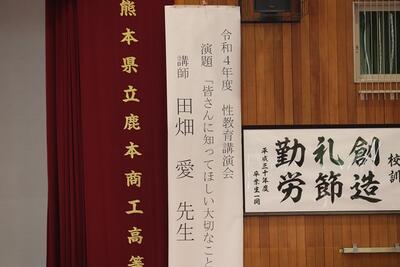 校訓
創造
礼節
勤労
平成三十年度
卒業生一同
令和4年度　性教育講演会
演題　「皆さんに知ってほしい大切なこと
講師　田畑　愛　先生
熊本県立鹿本商工高等